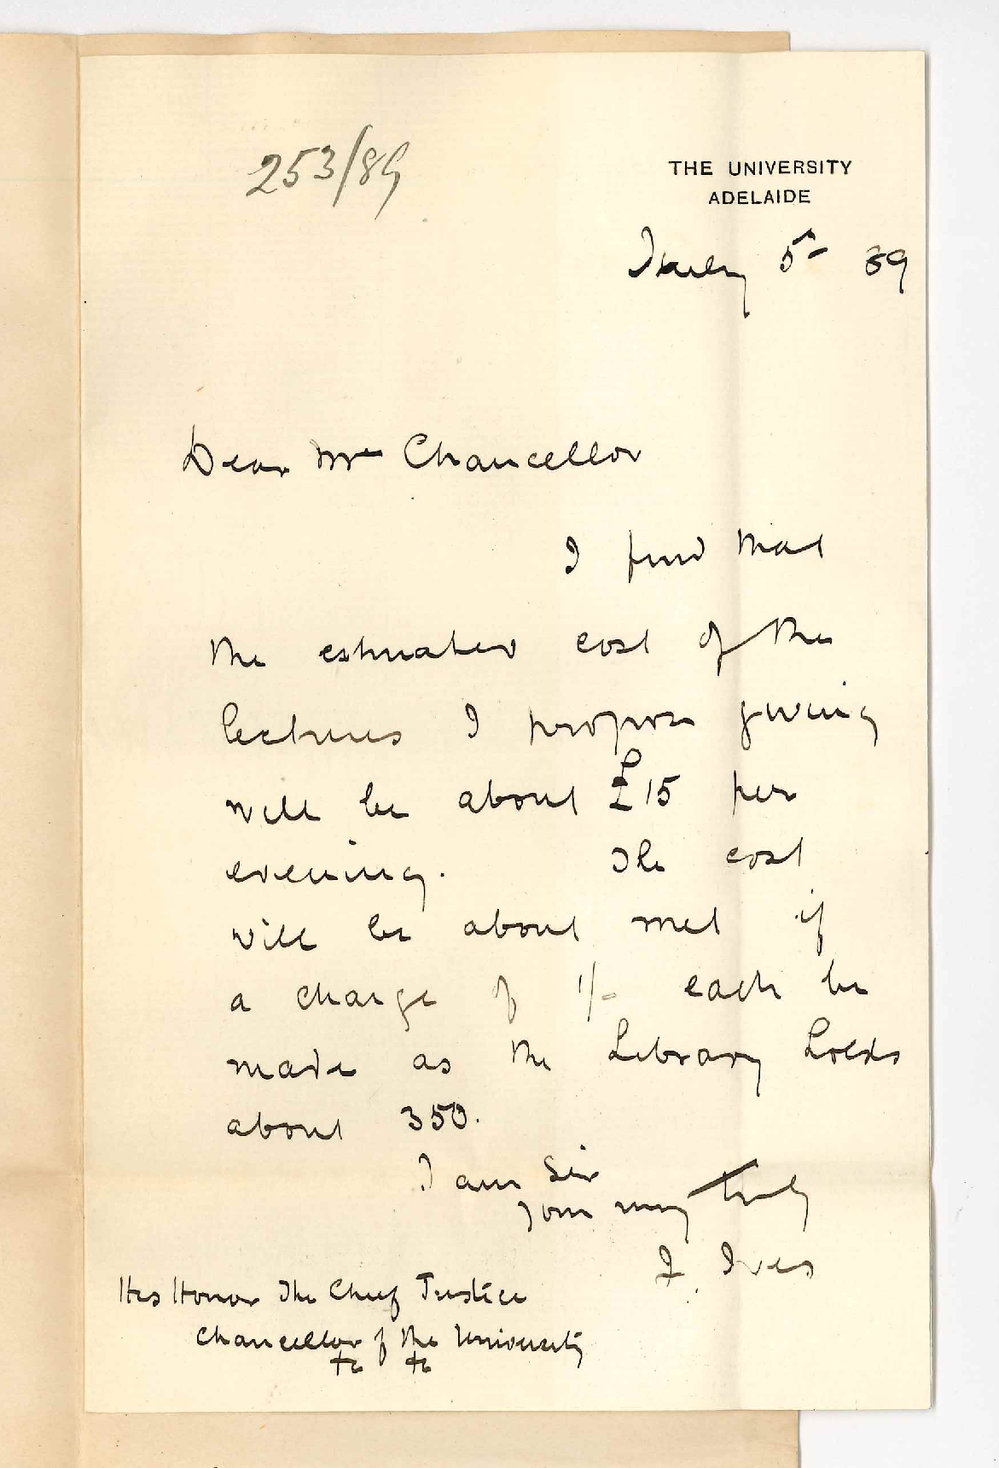 253/89
THE UNIVERSITY
ADELAIDE
5th 89
Dear Mr Chancellor
I find that
the estimated cost of the
lectures I propose giving
will be about £15 per
evening. The cost
will be about met if
a charge of 1/- each be
made as the Library holds
about 350.
I am Sir
Yours very truly
J. Ives
His Honor The Chief Justice
Chancellor of the University
&c &c